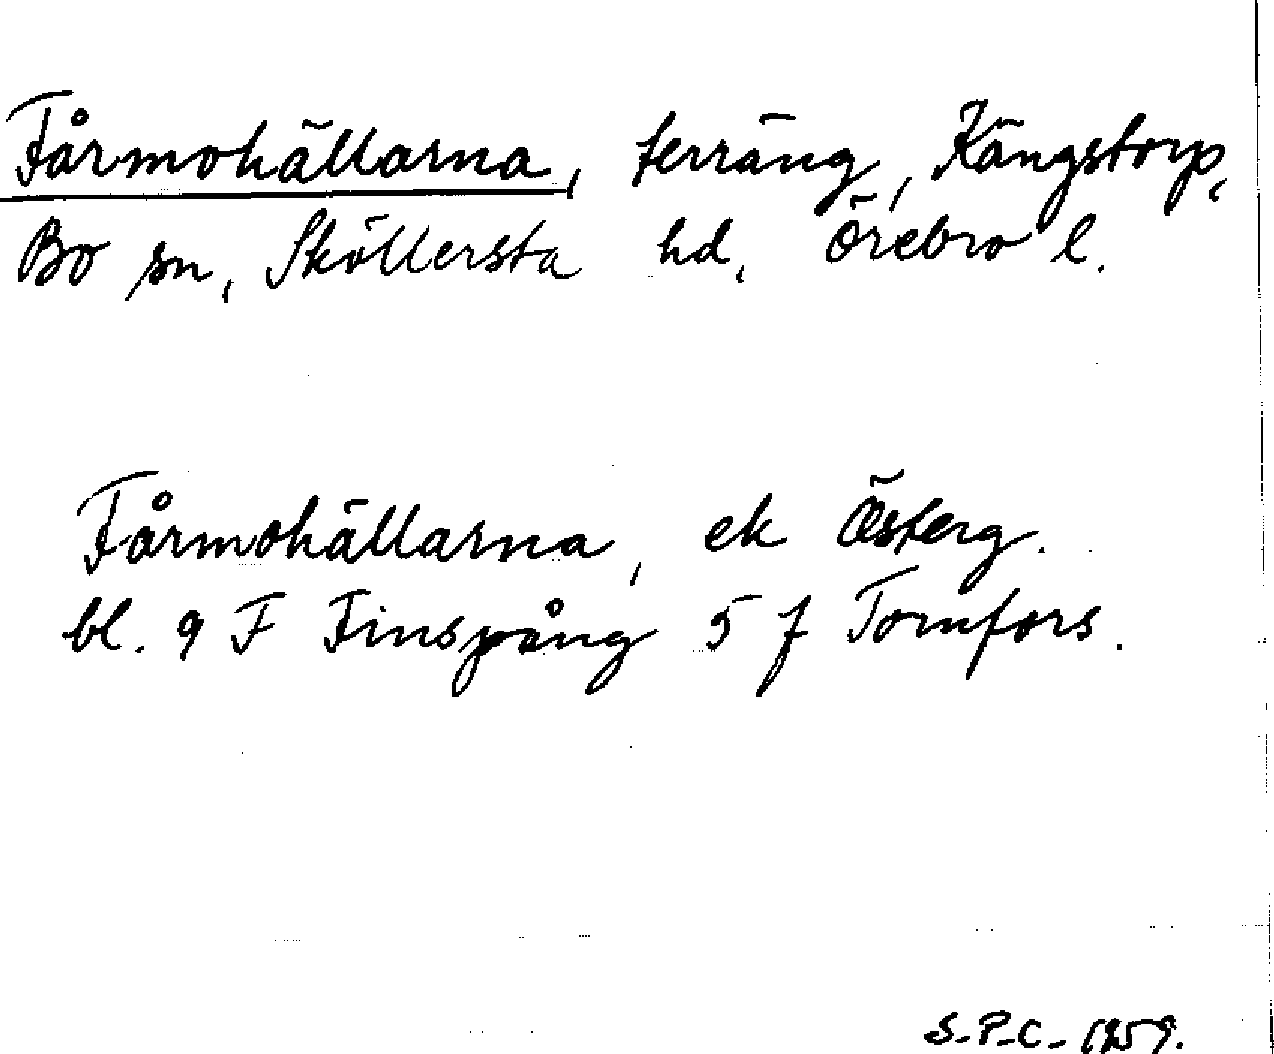 Fårmohällarna, terräng, Kängstorp,
Bo sn, Sköllersta hd, Örebro l.
Fårmohällarna, ek Österg.
bl. 9 F Finspång 5 f Tomfors.
S-P-C- 1959.